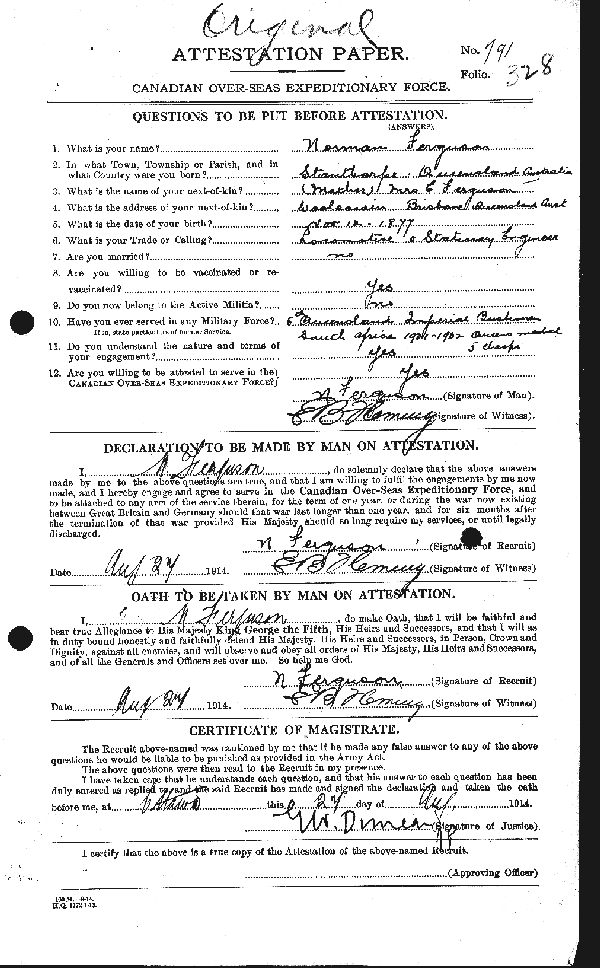 Original
ATTESTATION PAPER.
No. 791
Folio. 328
CANADIAN OVER-SEAS EXPEDITIONARY FORCE.
QUESTIONS TO BE PUT BEFORE ATTESTATION.
(ANSWERS).
1. What is your name? Norman Ferguson
2. In what Town, Township or Parish, and in
what Country were you born? Stanthorpe Queensland Australia
3. What is the name of your next-of-kin? (Mother) Mrs Ferguson
4. What is the address of your next-of-kin? Brisbane Queensland Aust
5. What is the date of your birth? 1877
6. What is your Trade or Calling? Locomotive & Stationary Engineer
7. Are you married? no
8. Are you willing to be vaccinated or re-
vaccinated? Yes
9. Do you now belong to the Active Militia? no
10. Have you ever served in any Military Force? 6 Queensland Imperial Bushmen
If so, state particulars of former Service. South Africa 1901-1902 Queens medal
5 clasps
11. Do you understand the nature and terms of
your engagement? Yes
12. Are you willing to be attested to serve in the
CANADIAN OVER-SEAS EXPEDITIONARY FORCE? Yes
N Ferguson (Signature of Man).
(Signature of Witness).
DECLARATION TO BE MADE BY MAN ON ATTESTATION.
I, N Ferguson, do solemnly declare that the above answers
made by me to the above questions are true, and that I am willing to fulfil the engagements by me now
made, and I hereby engage and agree to serve in the Canadian Over-Seas Expeditionary Force, and
to be attached to any arm of the service therein, for the term of one year, or during the war now existing
between Great Britain and Germany should that war last longer than one year, and for six months after
the termination of that war provided His Majesty should so long require my services, or until legally
discharged.
N Ferguson (Signature of Recruit)
Date Aug 27 1914. (Signature of Witness)
OATH TO BE TAKEN BY MAN ON ATTESTATION.
I, N Ferguson, do make Oath, that I will be faithful and
bear true Allegiance to His Majesty King George the Fifth, His Heirs and Successors, and that I will as
in duty bound honestly and faithfully defend His Majesty, His Heirs and Successors, in Person, Crown and
Dignity, against all enemies, and will observe and obey all orders of His Majesty, His Heirs and Successors,
and of all the Generals and Officers set over me. So help me God.
N Ferguson (Signature of Recruit)
Date Aug 27 1914. (Signature of Witness)
CERTIFICATE OF MAGISTRATE.
The Recruit above-named was cautioned by me that if he made any false answer to any of the above
questions he would be liable to be punished as provided in the Army Act.
The above questions were then read to the Recruit in my presence.
I have taken care that he understands each question, and that his answer to each question has been
duly entered as replied to, and the said Recruit has made and signed the declaration and taken the oath
before me, at Ottawa this 27 day of Aug. 1914.
(Signature of Justice)
I certify that the above is a true copy of the Attestation of the above-named Recruit.
(Approving Officer)